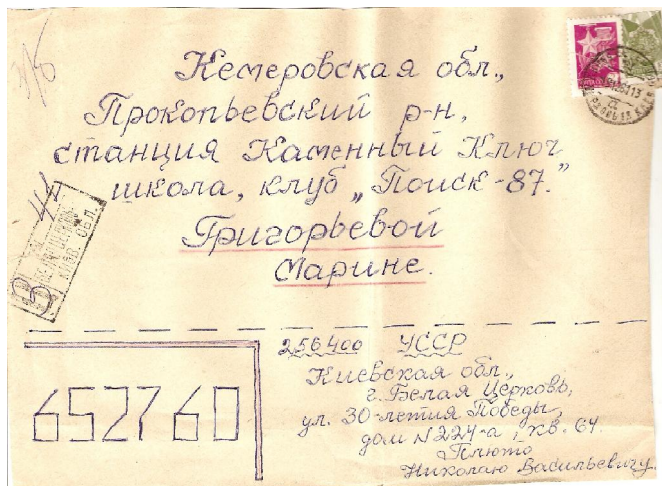 Кемеровская обл.,
Прокопьевский р-н,
станция Каменный Ключ
школа, клуб „Поиск-87."
Григорьевой
Марине.
256400 УССР
Киевская обл.,
г. Белая Церковь,
ул. 30-летия Победы,
дом N 224-а, кв. 64.
Плюто
Николаю Васильевичу.
652760